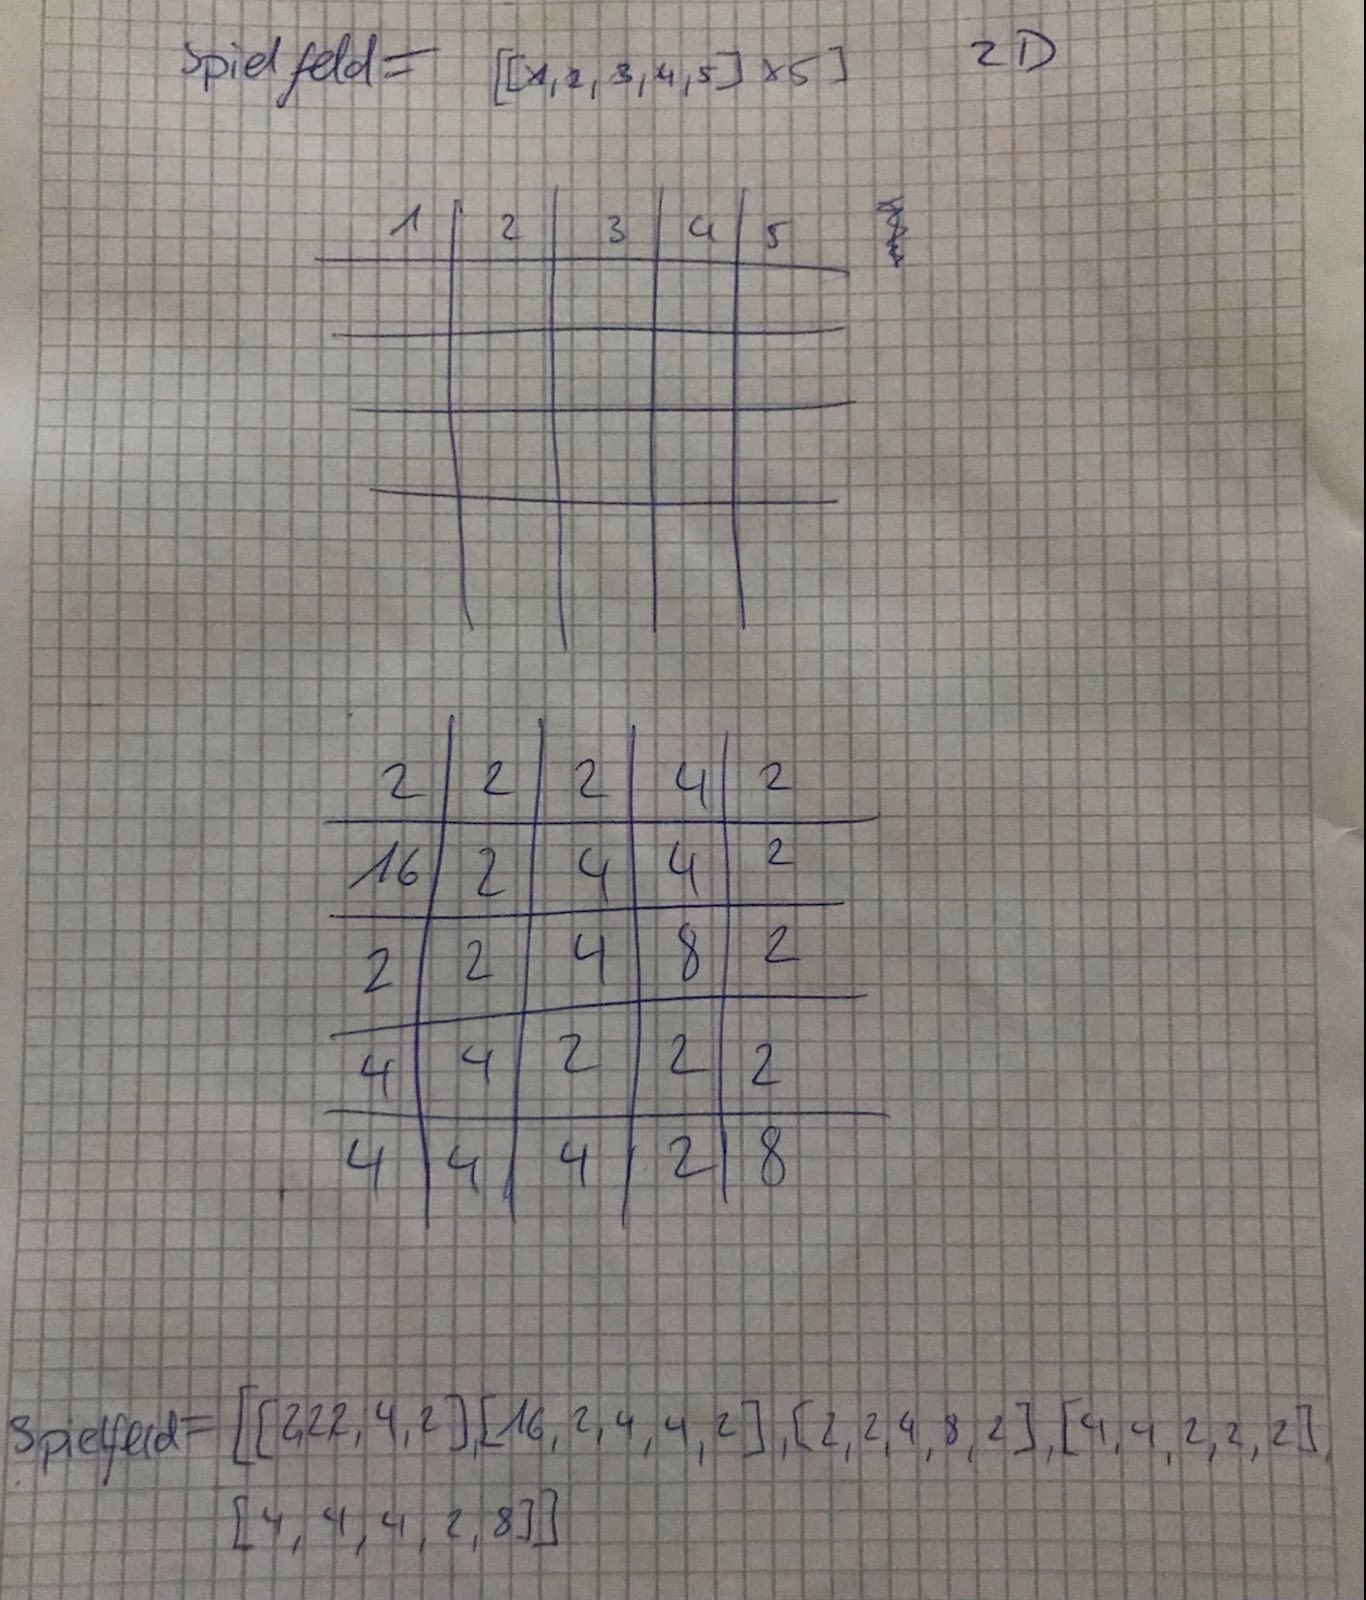 Spielfeld= [[1,2,3,4,5]x5] 2D
1 2 3 4 5
2 2 2 4 2
16 2 4 4 2
2 2 4 8 2
4 4 2 2 2
4 4 4 2 8
Spielfeld= [[2,22,4,2],[16,2,4,4,2],[2,2,4,8,2],[4,4,2,2,2],
[4,4,4,2,8]]